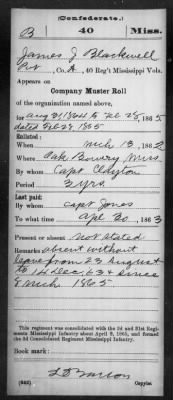 (Confederate.)
B 40 Miss.
James J Blackwell
Pvt, Co. A, 40 Reg't Mississippi Vols.
Appears on
Company Muster Roll
of the organization named above,
for Aug 31, 1864 to Feb 28, 1865
dated Feb 28 1865
Enlisted:
When Mch 13, 1862
Where Oak Bowery Miss.
By whom Capt Clayton
Period 3 yrs.
Last paid:
By whom Capt Jones
To what time Apl 30, 1863
Present or absent not stated
Remarks absent without
leave from 23 August
to 14 Dec, 63 & since
8 Mch 1865
This regiment was consolidated with the 3d and 31st Regiments Mississippi Infantry about April 9, 1865, and formed the 3d Consolidated Regiment Mississippi Infantry.
Book mark:
(642) Copyist.